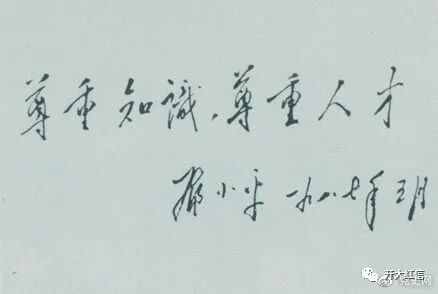 尊重知識，尊重人才
鄧小平 一九八七年五月
开大红信
党史网